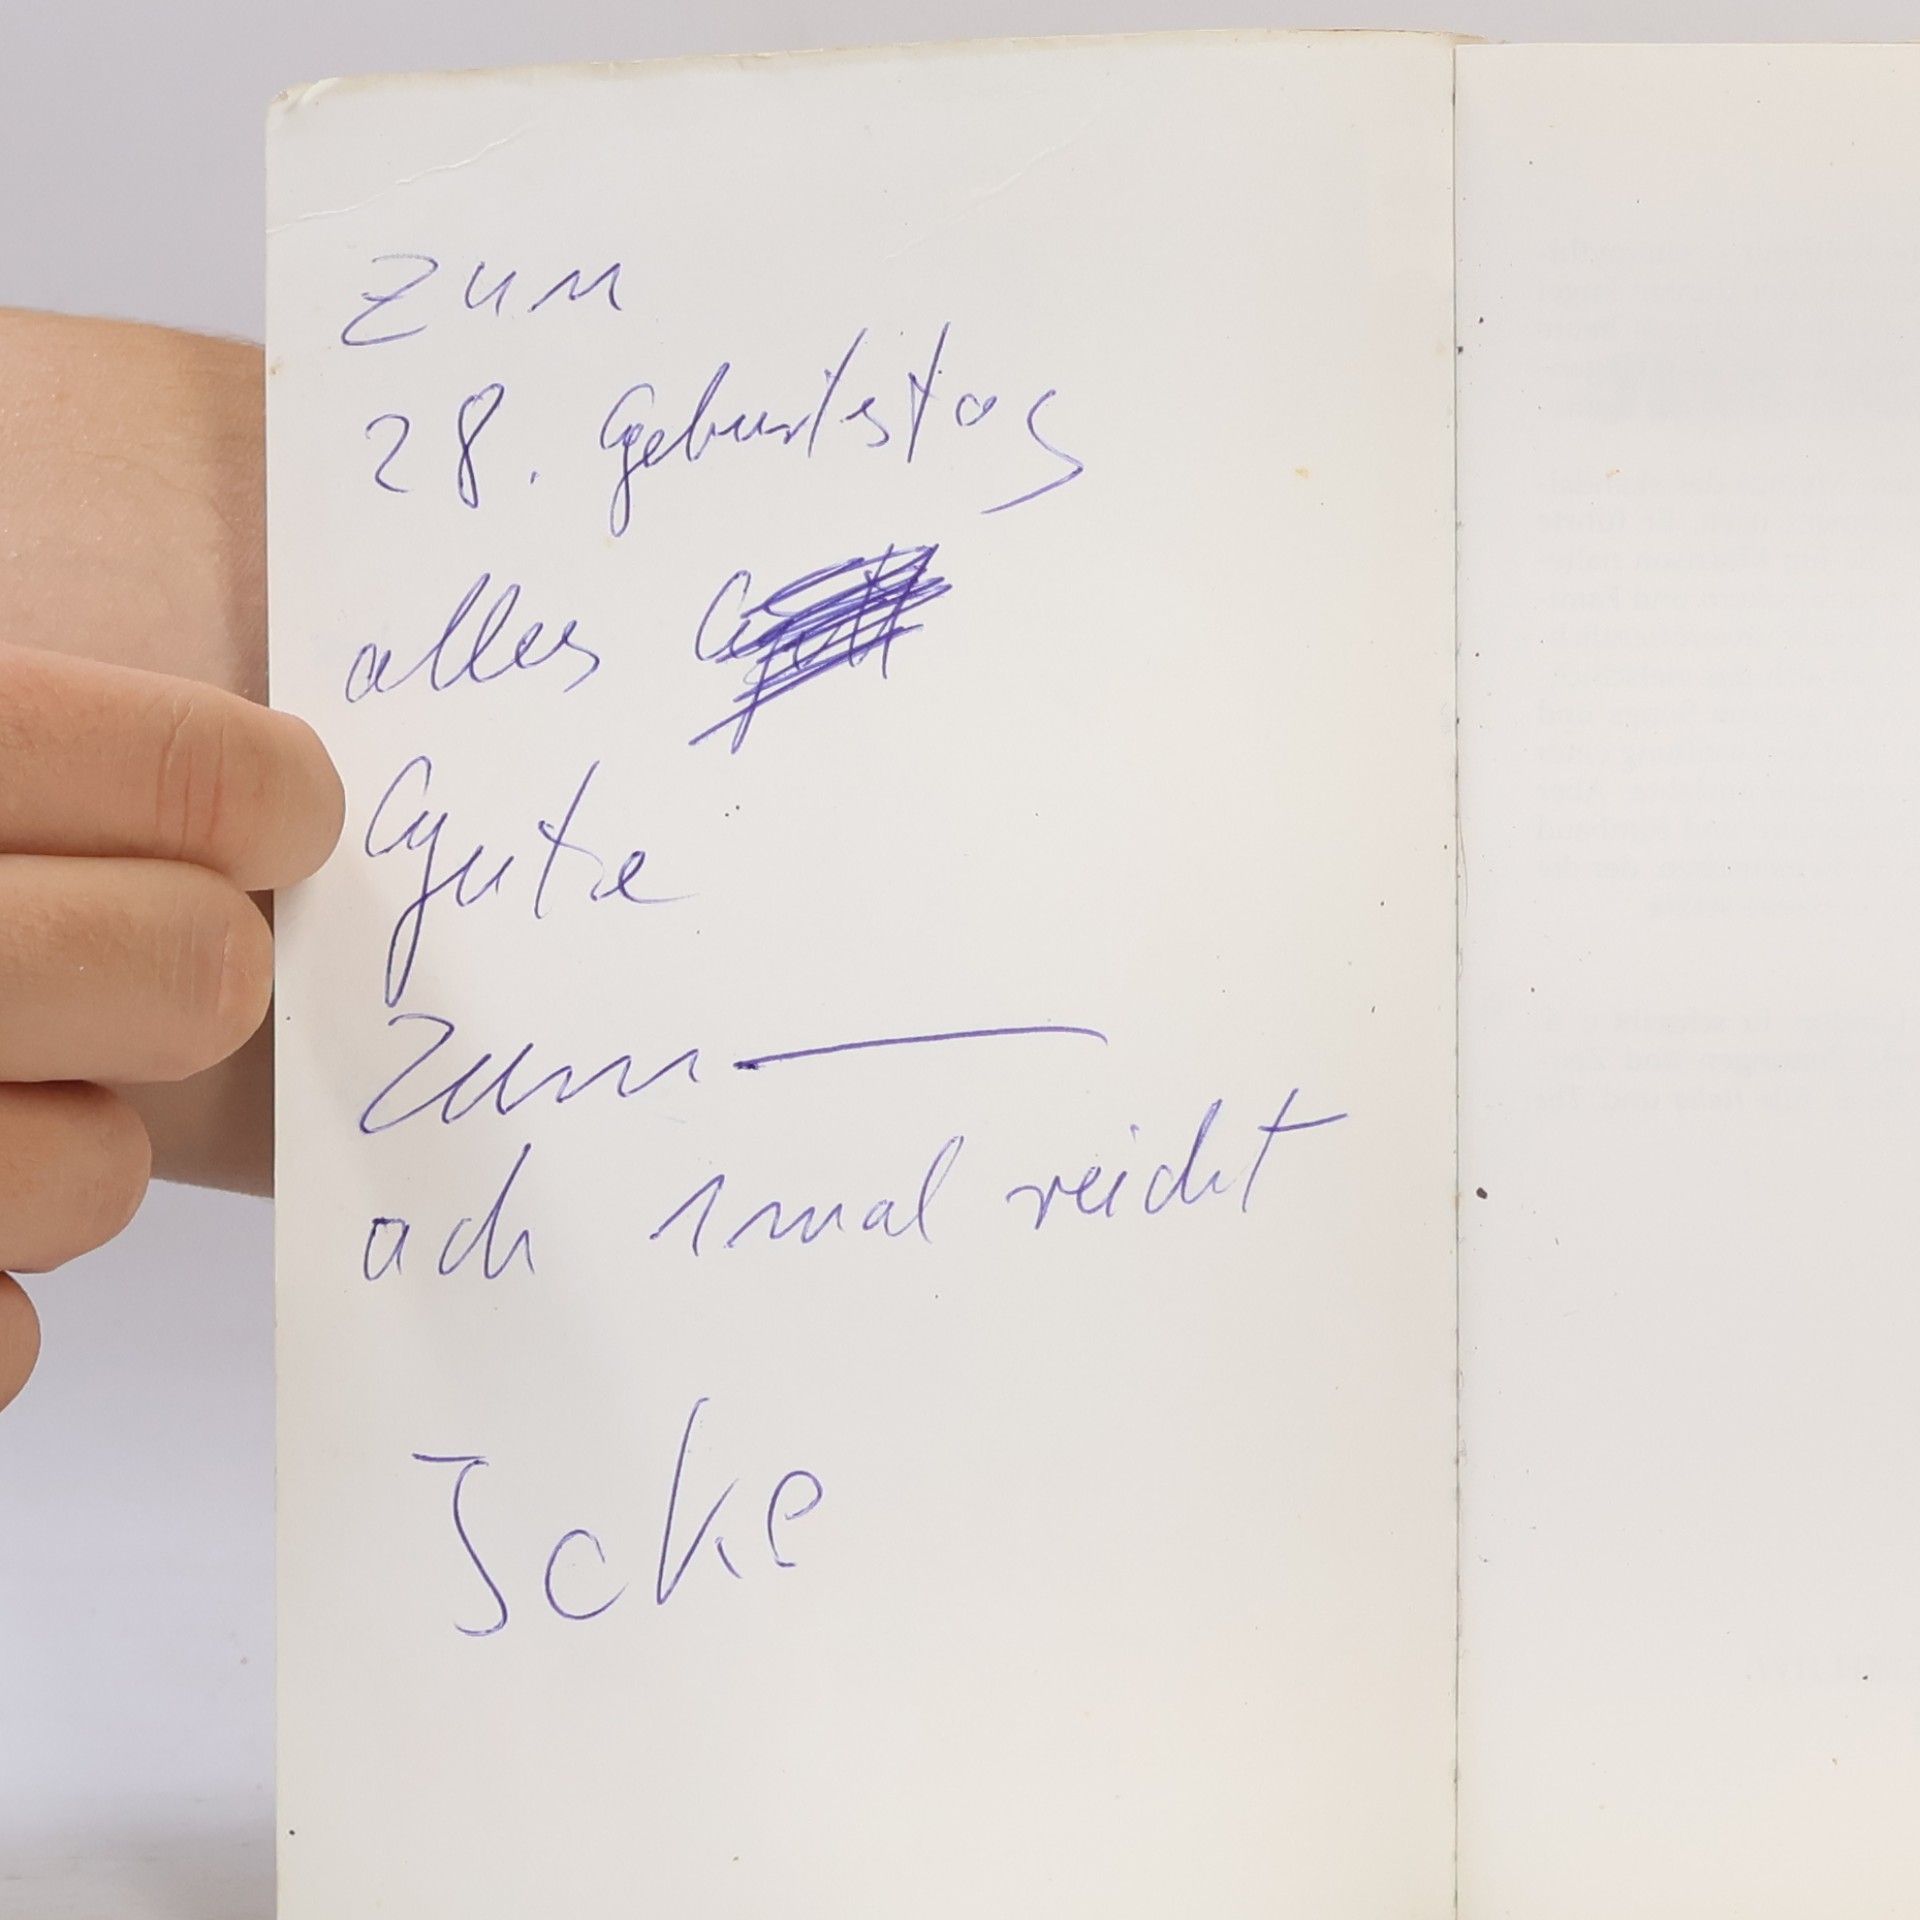 Zum
28. Geburtstag
alles
Gute
Zum—
ach 1mal reicht
Icke